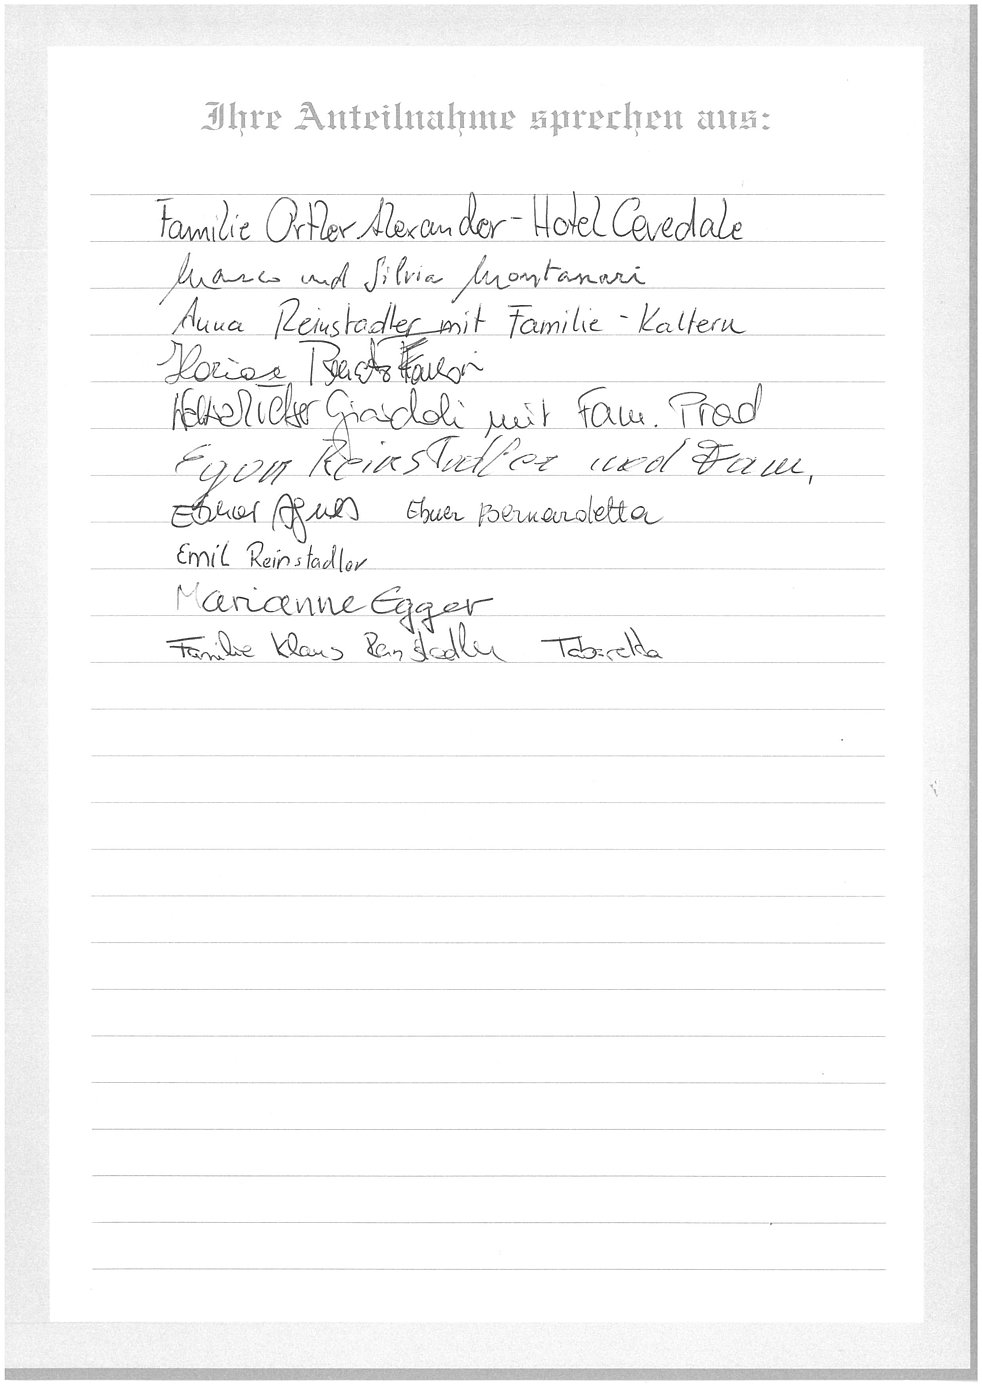 Ihre Anteilnahme sprechen aus:
Familie Ortler Alexander - Hotel Cevedale
Marco und Silvia Montanari
Anna Reinstadler mit Familie - Kaltern
mit Fam. Prad
Egon Reinstadler und Fam.
Ebner Agnes Ebner Bernardetta
Emil Reinstadler
Marianne Egger
Familie Klaus Reinstadler Tabaretta